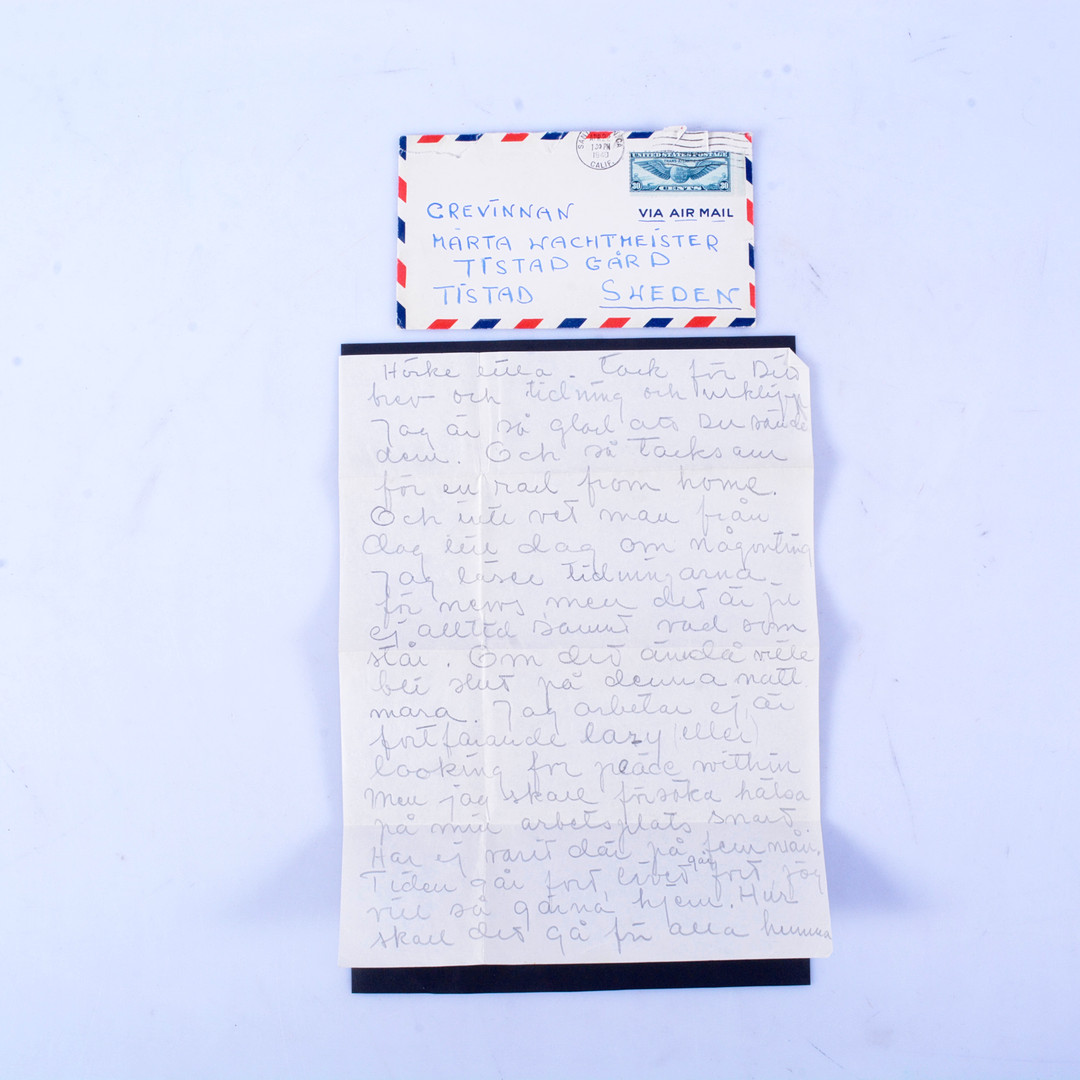 SANTA MONICA
1 30 PM
1940
CALIF.
UNITED STATES POSTAGE
TRANS-ATLANTIC
30 CENTS 30
VIA AIR MAIL
GREVINNAN
MÄRTA WACHTMEISTER
TISTAD GÅRD
TISTAD SWEDEN
Hörke lilla. Tack för Ditt
brev och tidning och urklipp
Jag är så glad att Du sände
dem. Och så tacksam
för en rad from home.
Och inte vet man från
dag till dag om någonting
Jag läser tidningarna
för news men det är ju
ej alltid sannt vad som
står. Om det ändå ville
bli slut på denna natt
mara. Jag arbetar ej, är
fortfarande lazy (eller)
looking for peace within
Men jag skall försöka hälsa
på min arbetsplats snart.
Har ej varit där på fem mån.
Tiden går fort, livet går fort, jag
vill så gärna hjem. Hur
skall det gå för alla hemma